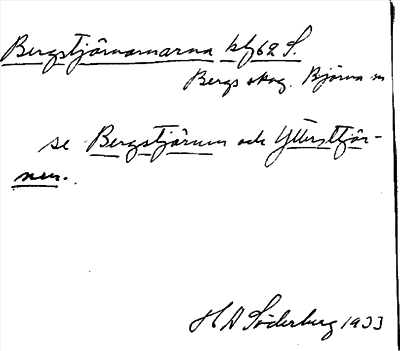 Bergstjärnarnarna kf 62 S.
Bergs skog. Björna sn
se Bergstjärnen och Yttersttjär-
nen.
H A Söderberg 1933